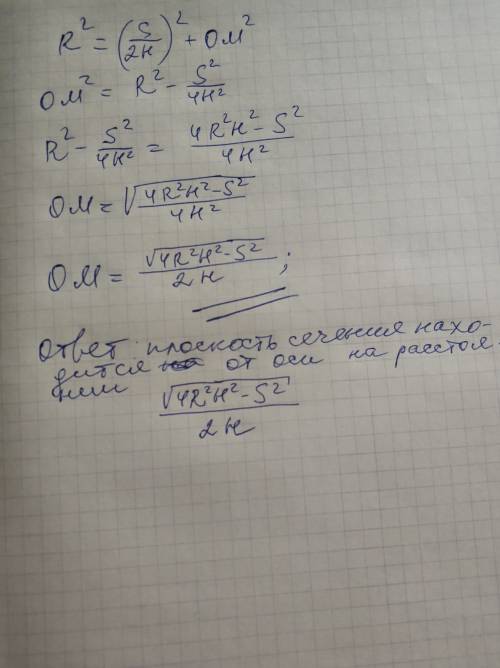 R² = (S/2H)² + OM²
OM² = R² - S²/4H²
R² - S²/4H² = 4R²H² - S²/4H²
OM = √4R²H² - S²/4H²
OM = √4R²H² - S²/2H ;
Ответ: плоскость сечения нахо-
дится от оси на расстоя-
нии √4R²H² - S²/2H